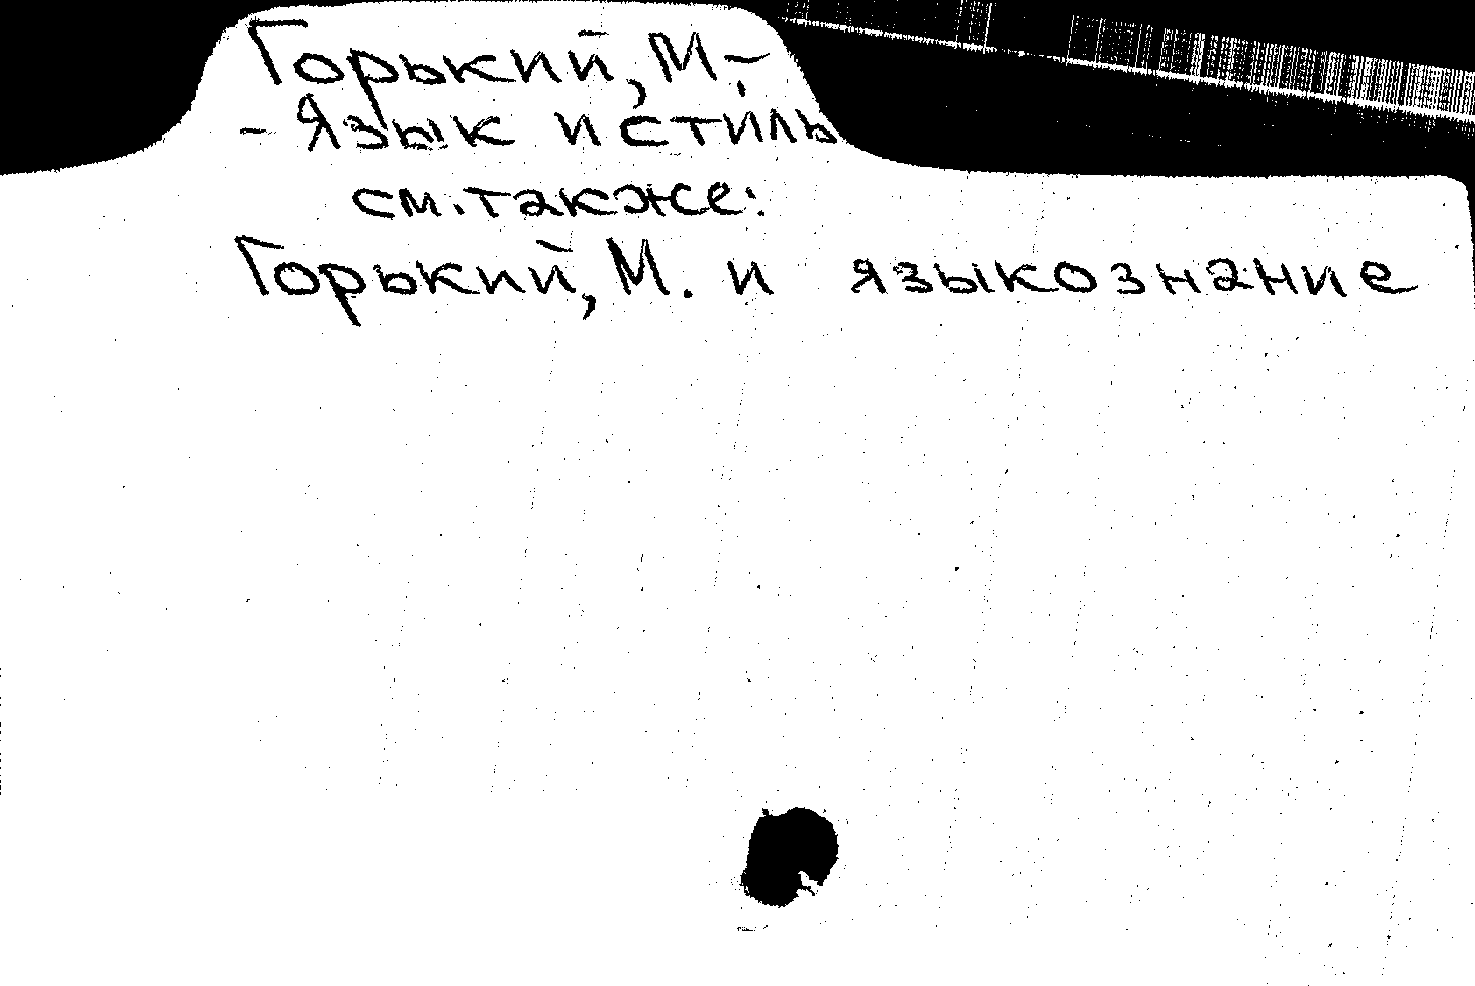 Горький, М.-
- Язык и стиль
см. также:
Горький, М. и языкознание